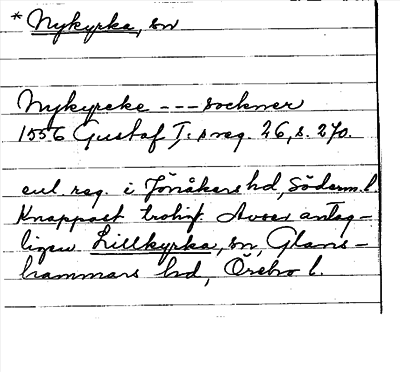 * Nykyrka, sn
Nykyrcke --- sockner
1556 Gustaf I:s reg. 26, s. 270.
enl. reg. i Jönåkers hd, Söderm. l.
Knappast trolig. Avses antag-
ligen Lillkyrka, sn, Glans-
hammars hd, Örebro l.